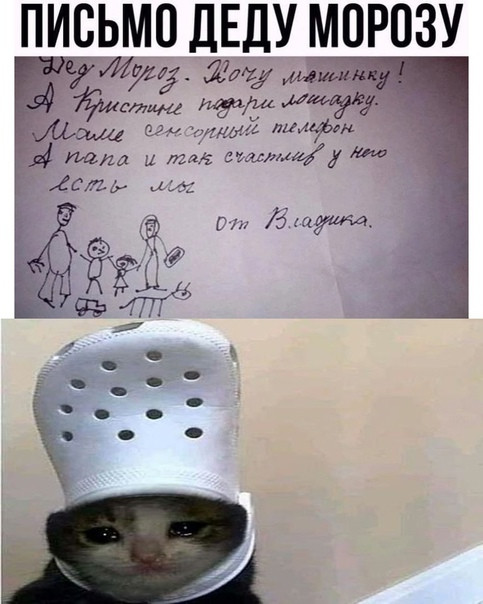 ПИСЬМО ДЕДУ МОРОЗУ
Дед Мороз. Хочу машинку!
А Кристине подари лошадку.
Маме сенсорный телефон
А папа и так счастлив у него
есть мы
от Владика.